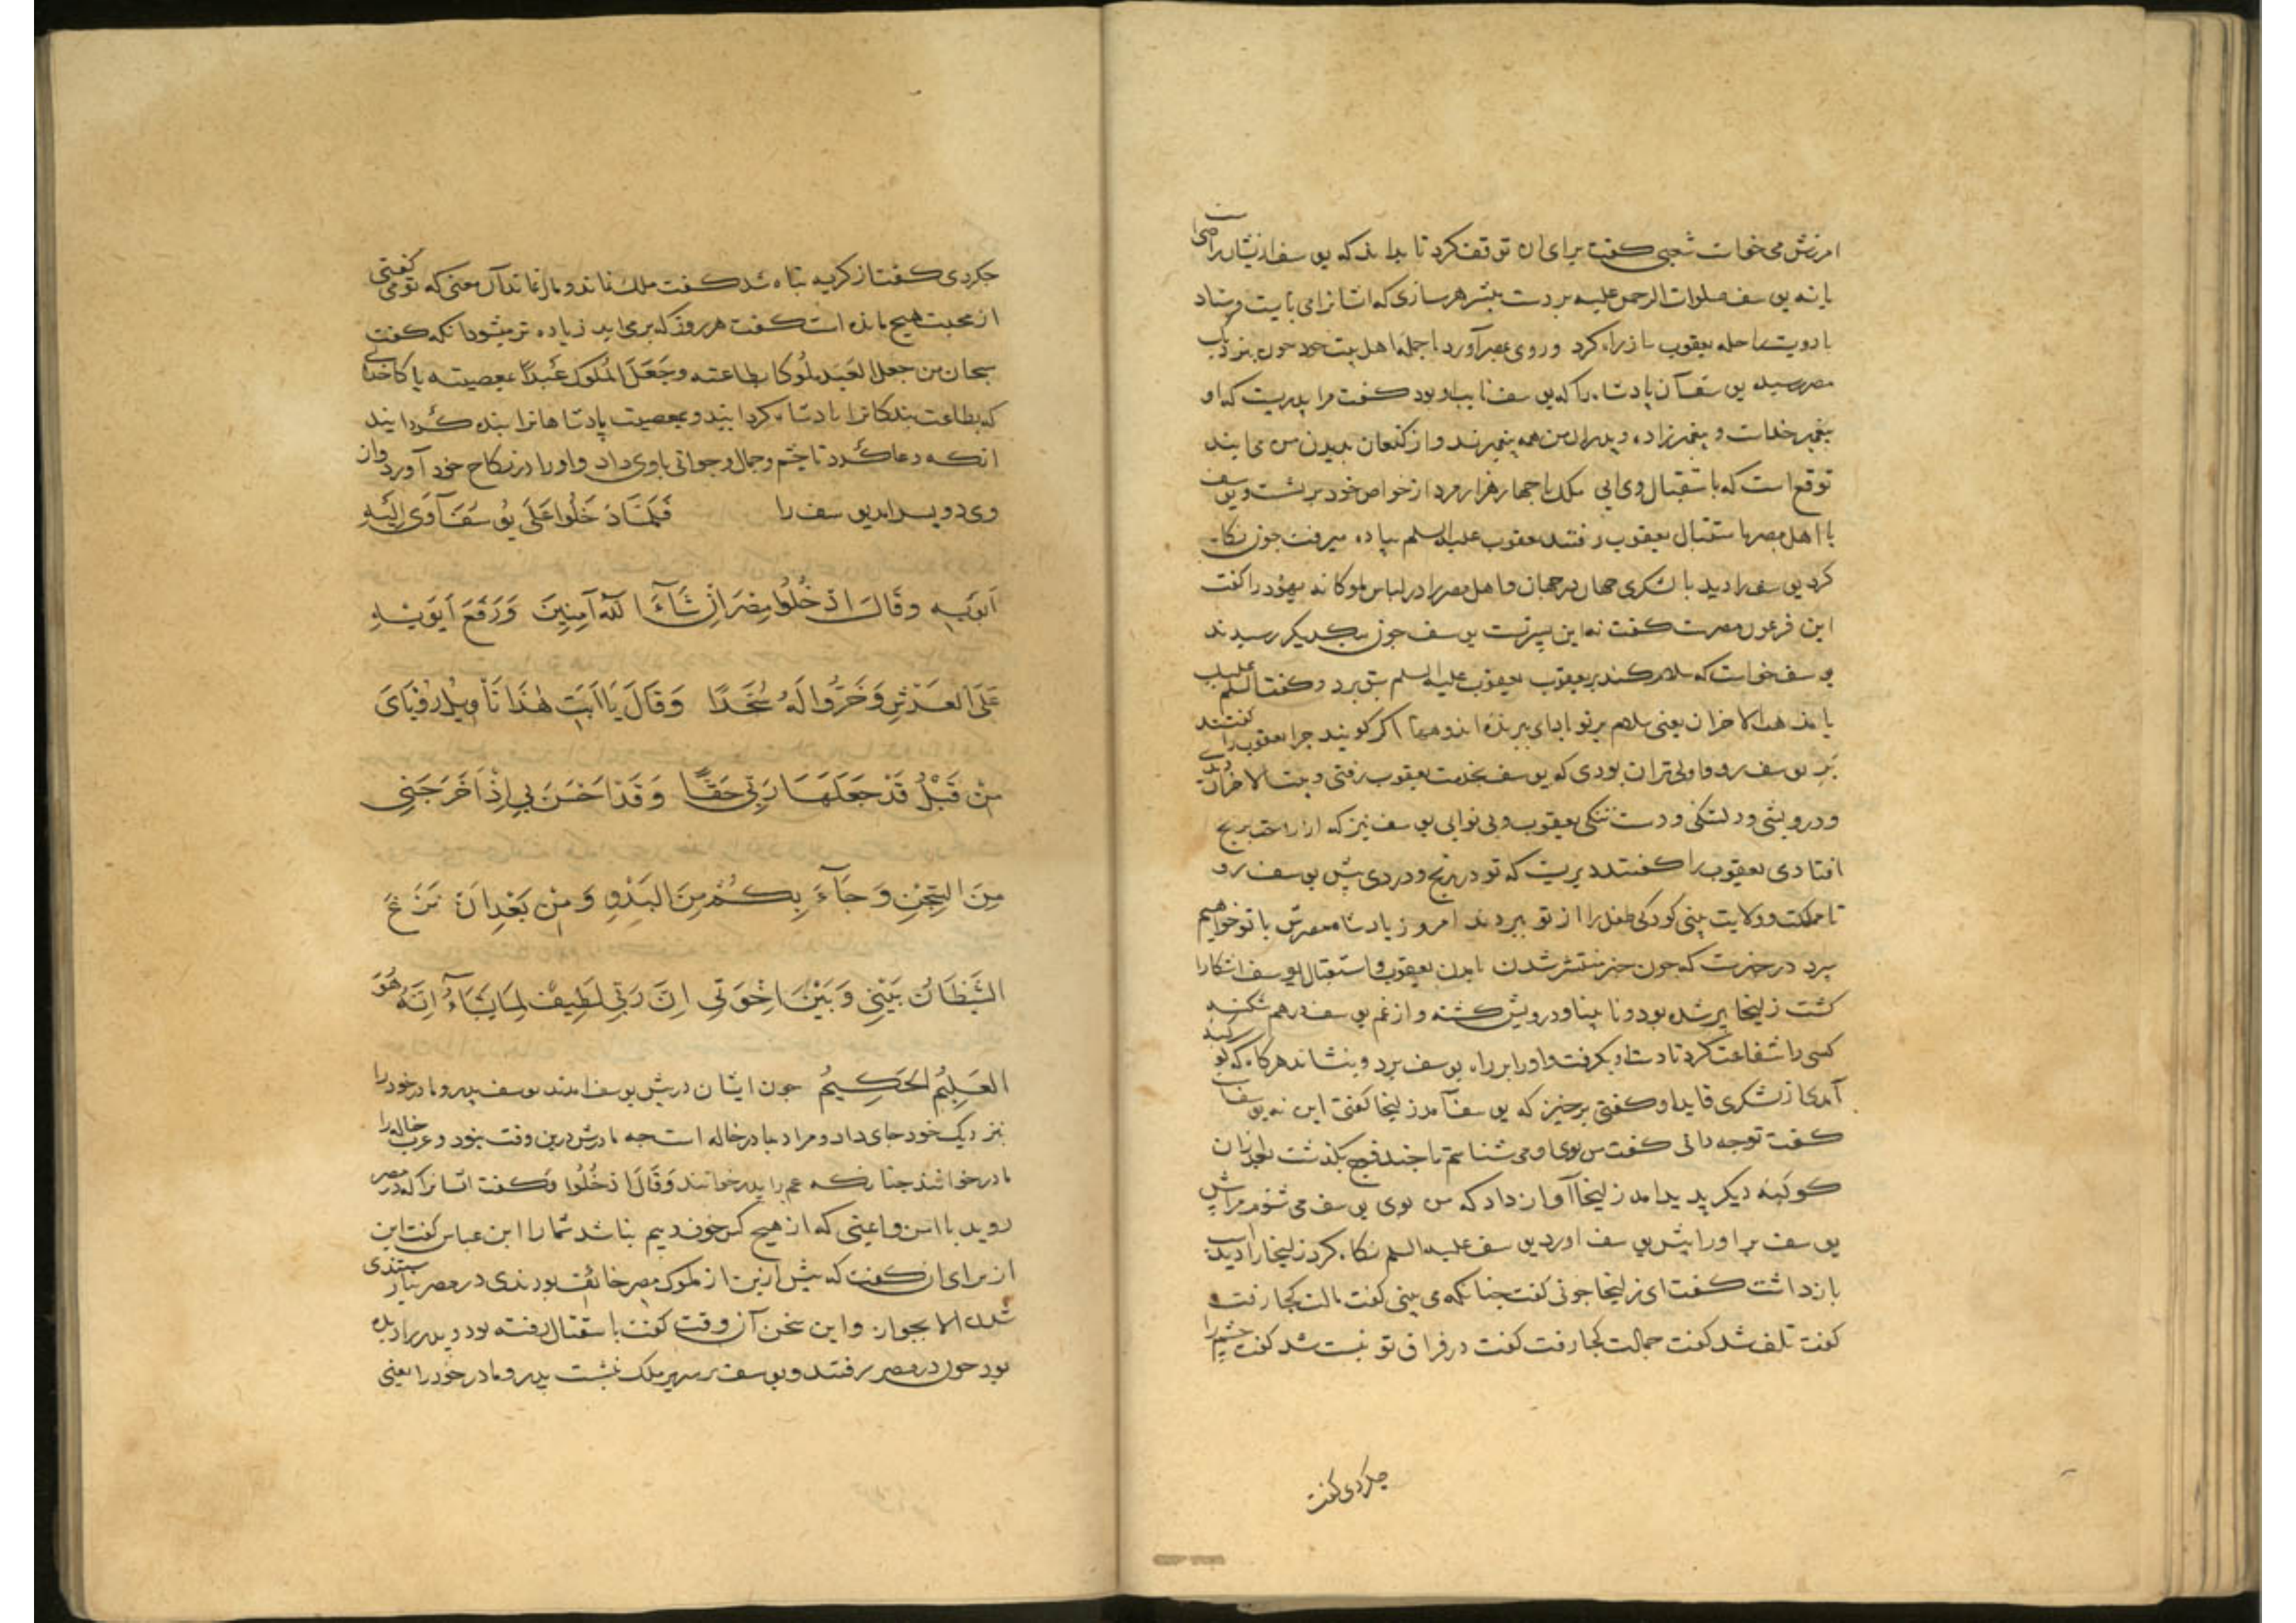 امرزش می خواست شعبی گفت برای ان توقف کرد تا بداند که یوسف ازیشان راضی است
یا نه یوسف صلوات الرحمن علیه بر دست بشیر هر سازی که ایشانرا می بایست فرستاد
با دویست راحله یعقوب ساز راه کرد و روی بمصر آورد با جمله اهل بیت خود چون بنزدیک
مصر رسید یوسف آن پادشاه را که یوسف نایب او بود گفت مرا پدریست که او
پیغمبر خداست و پیغمبر زاده و پدران من همه پیغمبرند و از کنعان بدیدن من می ایند
توقع است که باستقبال وی ایی ملک با چهار هزار مرد از خواص خود برنشست و یوسف
با اهل مصر باستقبال یعقوب رفتند یعقوب علیه السلم پیاده میرفت چون نگاه
کرد یوسف را دید با لشکری جهان در جهان و اهل مصر را در لباس ملوکانه یهود را گفت
این فرعون مصرست گفت نه این پسر تست یوسف چون بیکدیگر رسیدند
یوسف خواست که سلام کند بر یعقوب یعقوب علیه السلم پیش برد و گفت السلم علیک
یا مذهب الاحزان یعنی سلام بر تو ای ببرنده اندوهها اگر گویند چرا یعقوب را گفتند
بر یوسف رو و اولی تر ان بودی که یوسف بخدمت یعقوب رفتی و بیت الاحزان دیدی
و درویشی و دلتنگی و دست تنگی یعقوب و بی نوایی یوسف نیز که از راحت برنج
افتادی یعقوب را گفتند دیریست که تو در رنج و دردی پیش یوسف رو
تا مملکت و ولایت بینی کودکی طفل را از تو ببردند امروز پادشاه مصرش با تو خواهیم
سپرد در خبرست که چون خبر منتشر شد یعقوب و استقبال یوسف اشکارا
گشت زلیخا پیر شده بود و نابینا و درویش گشته و از غم یوسف در هم شکسته
کسی را شفاعت کرد تا دست او بگرفت و او را بر راه یوسف برد و بنشاند هرگاه که
آمدی از لشکری قاید او گفتی برخیز که یوسف آمد زلیخا گفتی این نه یوسف است
گفت تو چه دانی گفت من بوی او می شناسم تا چند فوج بگذشت بعد از ان
کوکبه دیگر پدید امد زلیخا آواز داد که من بوی یوسف می شنوم مرا پیش
یوسف بر او را پیش یوسف اورد یوسف علیه السلم نگاه کرد زلیخا را دید
بازداشت گفت ای زلیخا چونی گفت چنانکه می بینی گفت مالت کجا رفت
گفت تلف شد گفت جمالت کجا رفت گفت در فراق تو نیست شد گفت چشم را
چکردی گفت
چکردی گفت از گریه تباه شد گفت ملک نماند و مال نماند آن معنی که تو می گفتی
از محبت هیچ مانده است گفت هر روز که بر می اید زیاده تر میشود انگه گفت
سبحان من جعل العبید ملوکا بطاعته وجعل الملوک عبیدا بمعصیته پاکا خدای
که بطاعت بندگانرا پادشاه گرداند و بمعصیت پادشاهانرا بنده گرداند
انگه دعا کرد تا چشم و جمال و جوانی با وی داد و او را در نکاح خود آورد و از
وی دو پسر امد یوسف را فَلَمَّا دَخَلُوا عَلَی یُوسُفَ آوَی اِلَیْهِ
اَبَوَیْهِ وَقَالَ ادْخُلُوا مِصْرَ اِنْ شَآءَ اللّٰهُ آمِنِینَ وَرَفَعَ اَبَوَیْهِ
عَلَی العَرْشِ وَخَرُّوا لَهُ سُجَّدًا وَقَالَ یَا اَبَتِ هٰذَا تَأْوِیلُ رُؤْیَایَ
مِنْ قَبْلُ قَدْ جَعَلَهَا رَبِّی حَقًّا وَقَدْ اَحْسَنَ بِی اِذْ اَخْرَجَنِی
مِنَ السِّجْنِ وَجَآءَ بِکُمْ مِنَ البَدْوِ وَمِنْ بَعْدِ اَنْ نَزَغَ
الشَّیْطَانُ بَیْنِی وَبَیْنَ اِخْوَتِی اِنَّ رَبِّی لَطِیفٌ لِمَا یَشَآءُ اِنَّهُ هُوَ
العَلِیمُ الحَکِیمُ چون ایشان در پیش یوسف امدند یوسف پدر و مادر خود را
بنزدیک خود جای داد و مراد بمادر خاله است چه مادرش درین وقت نبود و عرب خاله را
مادر خوانند چنانکه عم را پدر خوانند وَقَالَ ادْخُلُوا وگفت ایشانرا که در مصر
روید با امن و ایمنی که از هیچ کس خوف و بیم نباشد شما را ابن عباس گفت این
از برای ان گفت که پیش ازین از ملوک مصر خائف بودندی در مصر نیارستندی
شدن الا بجواز و این سخن آن وقت گفت باستقبال رفته بود و پدر را دیده
بود چون در مصر رفتند و یوسف بر سریر ملک نشست پدر و مادر خود را یعنی